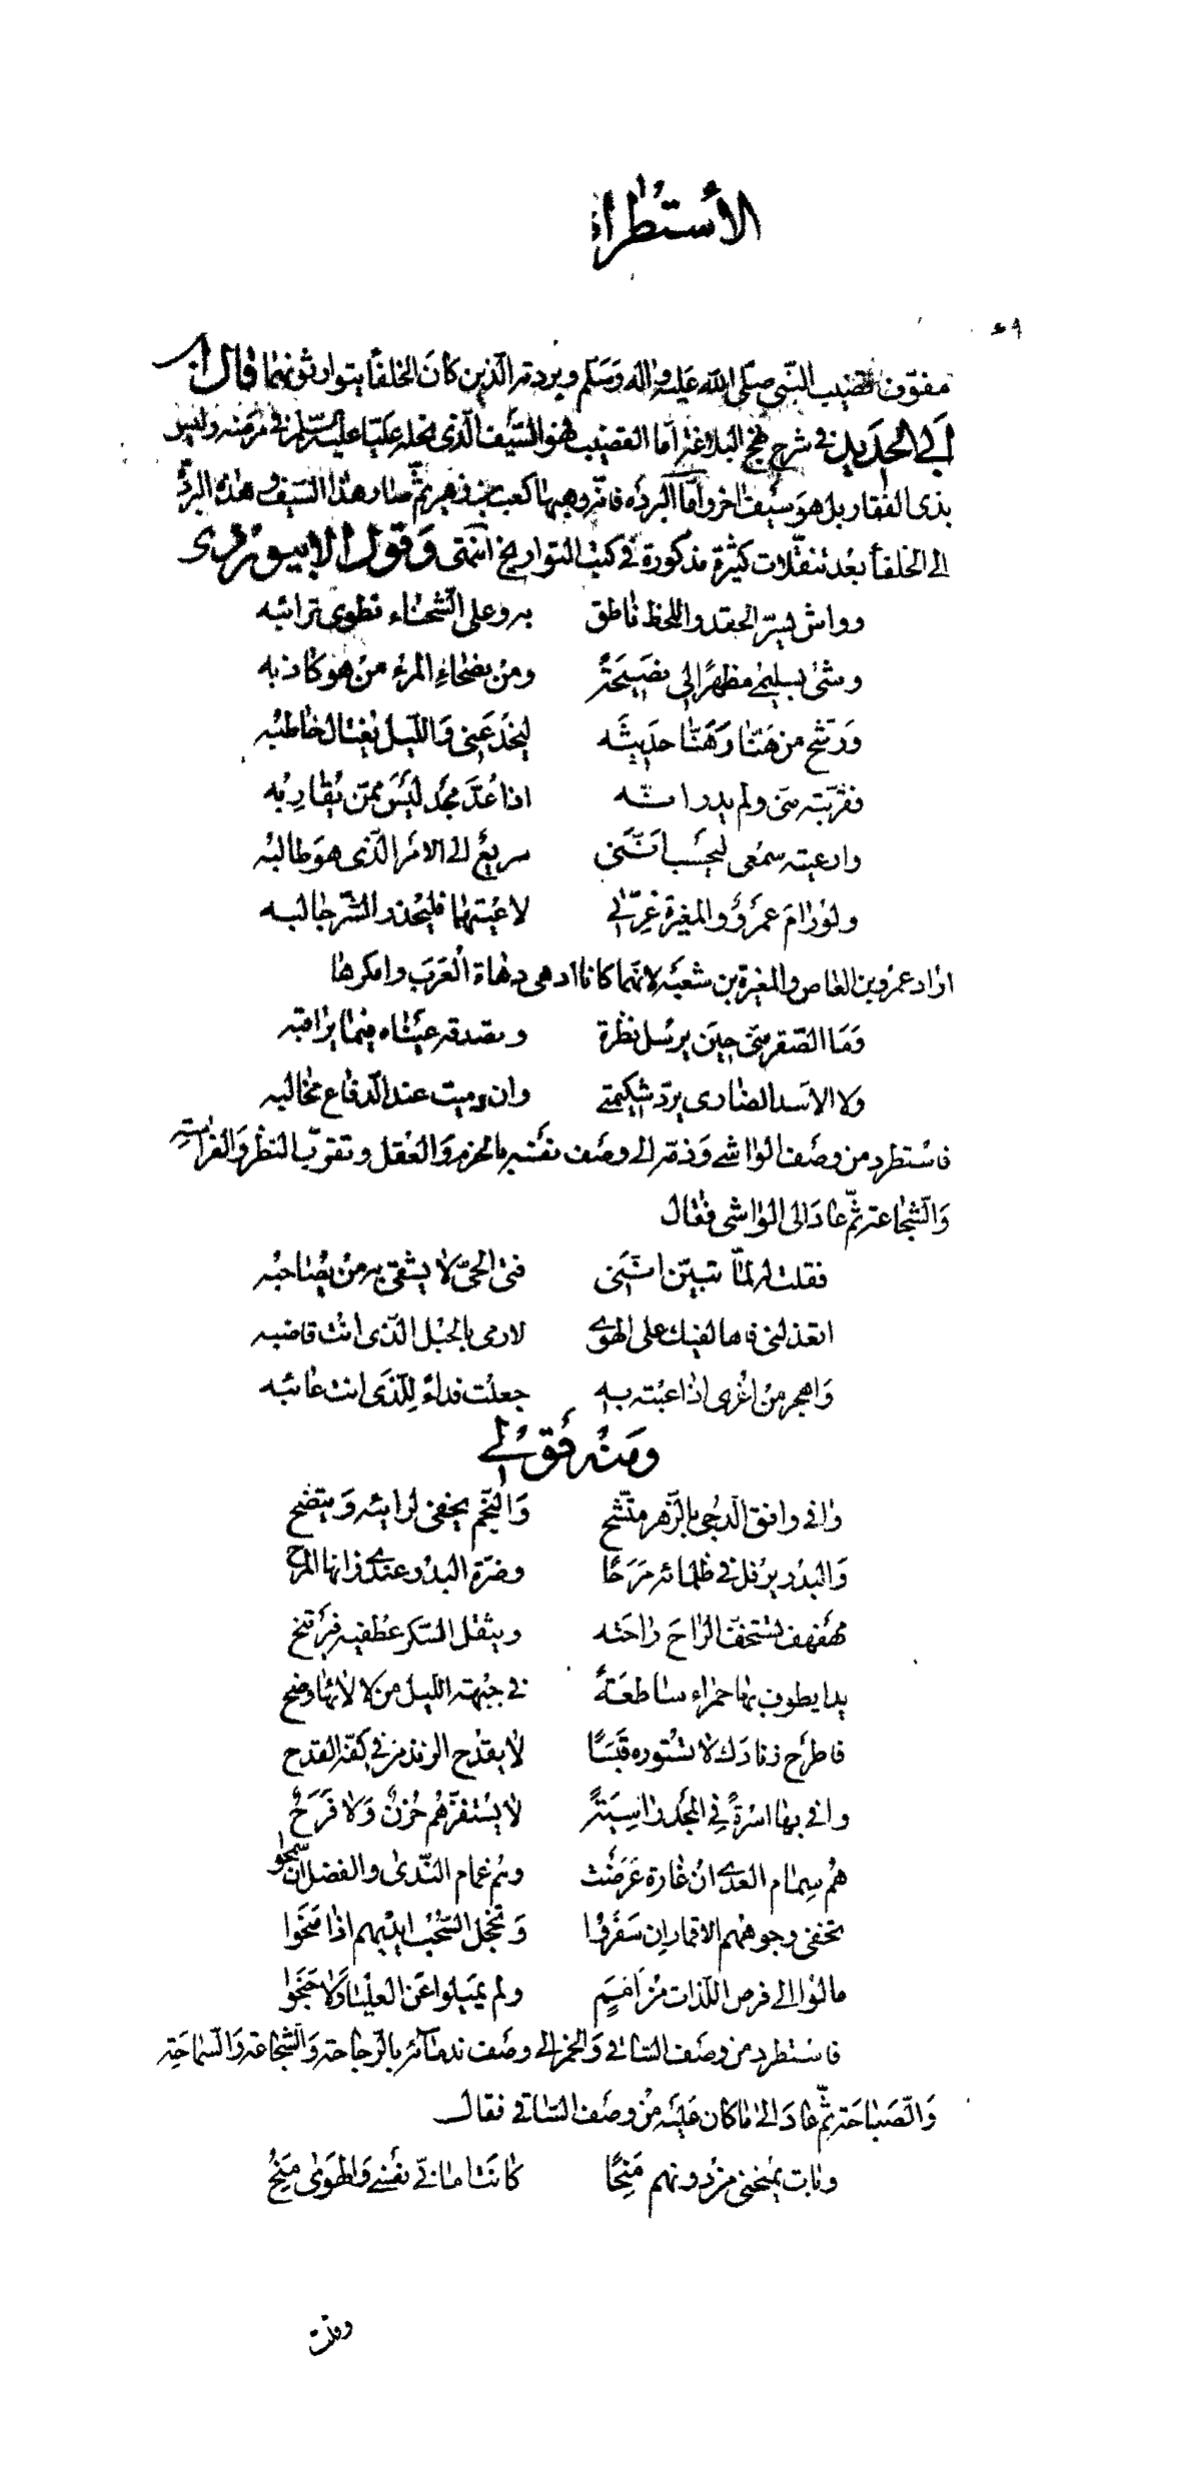 الاستطراد
٤٩
مفوّف قضيب النبي صلى الله عليه واله وسلم وبردته الذين كان الخلفأ يتوارثونهما قال ابن
ابي الحديد في شرح نهج البلاغة اما القضيب فهو السّيف الّذى نحله عليّا عليه السّلام في مرضه وليس
بذى الفقار بل هو سيف اخر وأمّا البردة فانّه وهبها كعب بن زهير ثمّ صار هذا السّيف وهذه البردة
الى الخلفأ بعد تنقّلات كثيرة مذكورة في كتب التواريخ انتهى وقول الابيوردى
وواش يسرّ الحقد واللحظ ناطق به وعلى الشّحناء تطوى ترائبه
وشى بسليمى مظهرًا لى نصيحةً ومن نصحاءِ المرءِ من هو كاذبه
ورشّح من هَنّا وهَنّا حديثه ليخدعنى والليل يغتال خاطبه
فقرّبته منى ولم يدر انّه اذا عُدّ مجد ليس ممّن يُقاربه
وارعيته سمعى ليحسب انّنى سريع الى الامر الّذى هو طالبه
ولو رام عمرو والمغيرة غرّتى لاعيتهما فليحذر الشّر جالبه
اراد عمرو بن العاص والمغيرة بن شعبة لانّهما كانا ادهى دهاة العرب وامكرها
وما الصّقر منّى حين يرسل نظرة وتصدقه عيناه فيما يراقبه
ولا الاسد الضارى يردّ شكيمتى وان دميت عند الدّفاع مخالبه
فاستطرد من وصف الواشى وذمّه الى وصف نفسه بالحزم والعقل وتقوّب النظر والفراسة
والشّجاعة ثمّ عاد الى الواشى فقال
فقلت له لمّا تبيّن انّنى فتى الحىّ لا يشقى به من يصاحبه
اتعذلنى فاها لفيك على الهوى لارمى بالحبل الّذى انت قاضبه
واهجر من اغرى اذا عبته به جعلت فداءً للّذى انت عائبه
ومنه قولى
وافى وافق الدّجى بالزّهر متّشح والنّجم يخفى لرائيه ويتّضح
والبدر يرفل في ظلمائه مرحًا وضرّة البدر عندى زانها المرح
مهفهف تستخفّ الراح راحته ويثقل السّكر عطفيه فيرتنح
بدا يطوف بها حمراء ساطعةً في جبهة الليل من لالائها وضح
فاطرح زنادك لا تستوره قبسًا لا يقدح الزند من في كفّه القدح
وافى بها اسرةً في المجد راسيةً لا يستفزّهم حزنٌ ولا فرحٌ
هم سمام العدى ان غارة عرضت وهم غمام النّدى والفضل ان سمحوا
تخفى وجوههم الاقمار ان سفروا وتخجل السّحب ايديهم اذا منحوا
مالوا الى فرص اللّذات من امم ولم يميلوا عن العليا ولا جنحوا
فاستطرد من وصف السّاقى والخمر الى وصف ندمائه بالرّجاحة والشّجاعة والسّماحة
والصّباحة ثمّ عاد الى ما كان عليه من وصف السّاقى فقال
وبات يمنحنى من دونهم منحًا كانت امانىّ نفسى والهوى منح